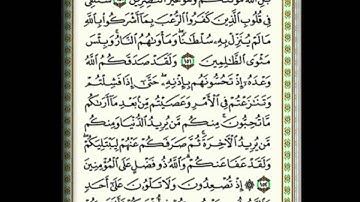 بَلِ ٱللَّهُ مَوْلَىٰكُمْ وَهُوَ خَيْرُ ٱلنَّٰصِرِينَ ۝١٥٠ سَنُلْقِى
فِى قُلُوبِ ٱلَّذِينَ كَفَرُوا۟ ٱلرُّعْبَ بِمَآ أَشْرَكُوا۟ بِٱللَّهِ
مَا لَمْ يُنَزِّلْ بِهِۦ سُلْطَٰنًا وَمَأْوَىٰهُمُ ٱلنَّارُ وَبِئْسَ
مَثْوَى ٱلظَّٰلِمِينَ ۝١٥١ وَلَقَدْ صَدَقَكُمُ ٱللَّهُ
وَعْدَهُۥٓ إِذْ تَحُسُّونَهُم بِإِذْنِهِۦ حَتَّىٰٓ إِذَا فَشِلْتُمْ
وَتَنَٰزَعْتُمْ فِى ٱلْأَمْرِ وَعَصَيْتُم مِّنۢ بَعْدِ مَآ أَرَىٰكُم
مَّا تُحِبُّونَ مِنكُم مَّن يُرِيدُ ٱلدُّنْيَا وَمِنكُم
مَّن يُرِيدُ ٱلْءَاخِرَةَ ثُمَّ صَرَفَكُمْ عَنْهُمْ لِيَبْتَلِيَكُمْ
وَلَقَدْ عَفَا عَنكُمْ وَٱللَّهُ ذُو فَضْلٍ عَلَى ٱلْمُؤْمِنِينَ
۝١٥٢ إِذْ تُصْعِدُونَ وَلَا تَلْوُۥنَ عَلَىٰٓ أَحَدٍ